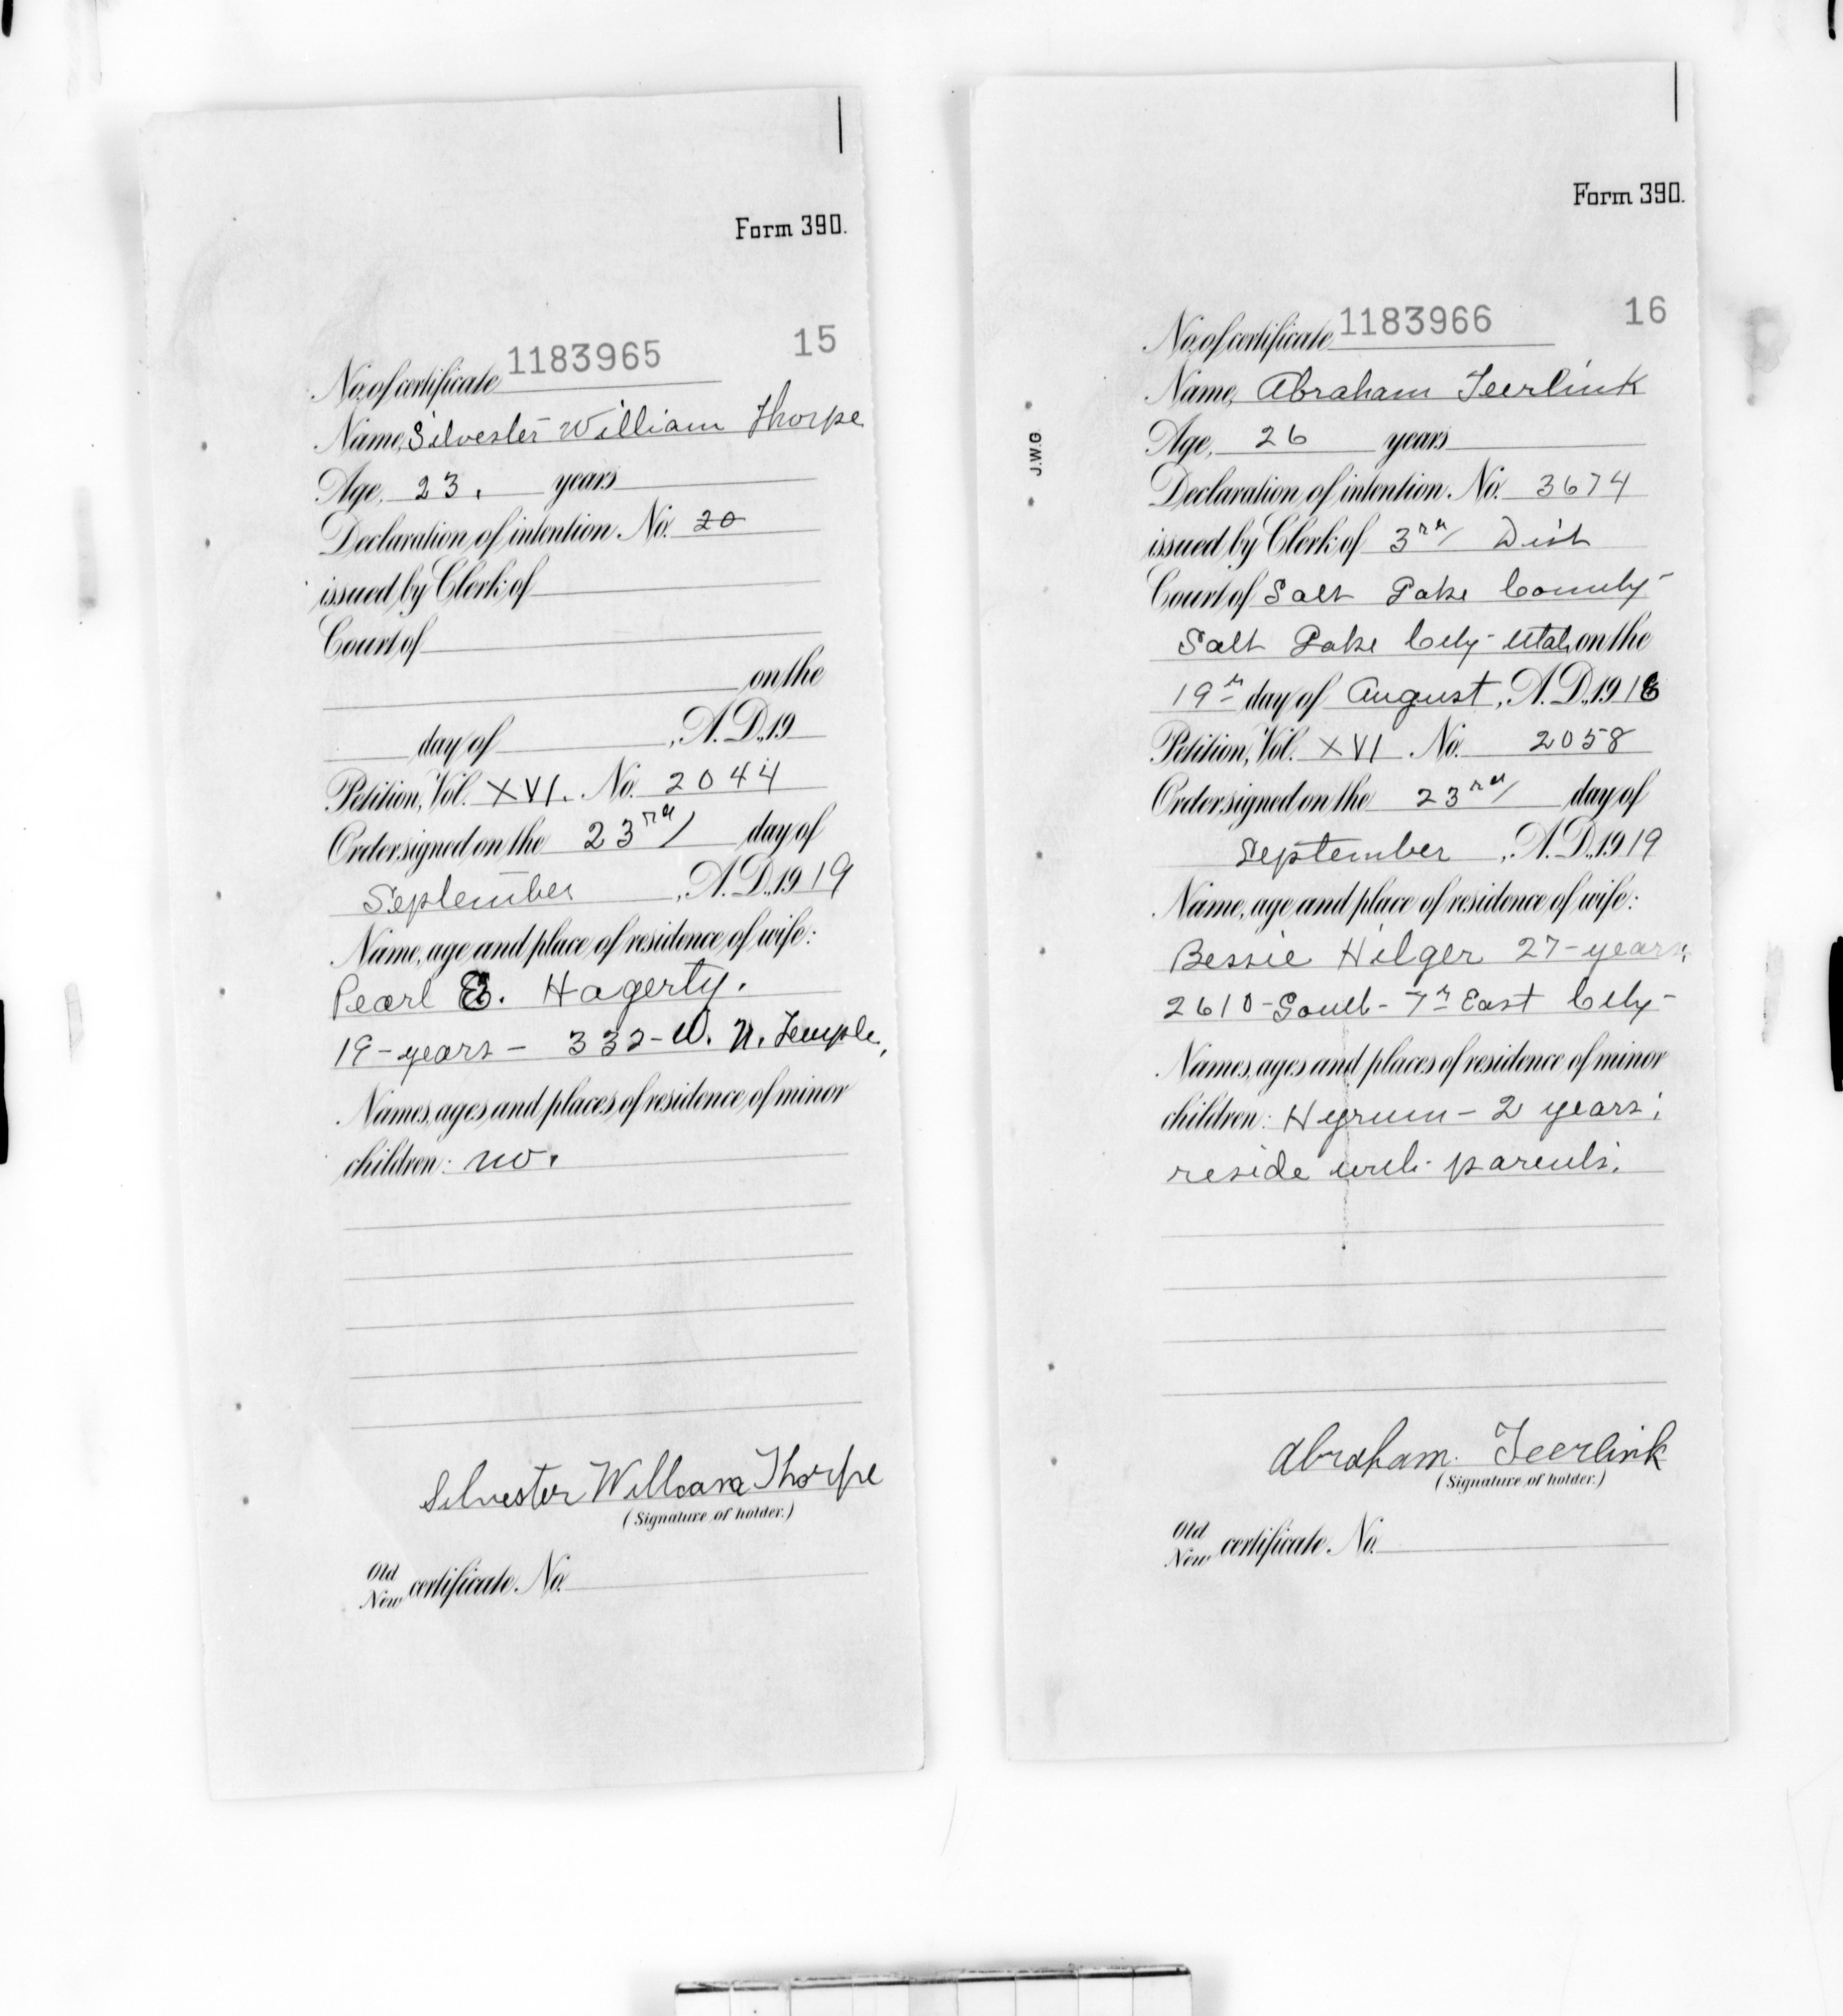 Form 390.
15
No. of certificate 1183965
Name, Silvester William Thorpe
Age, 23. years
Declaration of intention No. 20
issued by Clerk of
Court of
on the
day of , A.D., 19
Petition, Vol. XVI. No. 2044
Order signed on the 23rd day of
September , A.D., 1919
Name, age and place of residence of wife:
Pearl E. Hagerty.
19-years- 332-W. N. Temple,
Names, ages and places of residence of minor
children: no.
Silvester William Thorpe
(Signature of holder.)
Old
New certificate No.
Form 390.
16
No. of certificate 1183966
J.W.G
Name, Abraham Teerlink
Age, 26 years
Declaration of intention No. 3674
issued by Clerk of 3rd Dist
Court of Salt Lake County
Salt Lake City Utah, on the
19th day of August, A.D., 1916
Petition, Vol. XVI No. 2058
Order signed on the 23rd day of
September , A.D., 1919
Name, age and place of residence of wife:
Bessie Hilger 27-years;
2610-South-7th East City-
Names, ages and places of residence of minor
children: Hyrum- 2 years;
reside with parents.
Abraham. Teerlink
(Signature of holder.)
Old
New certificate No.